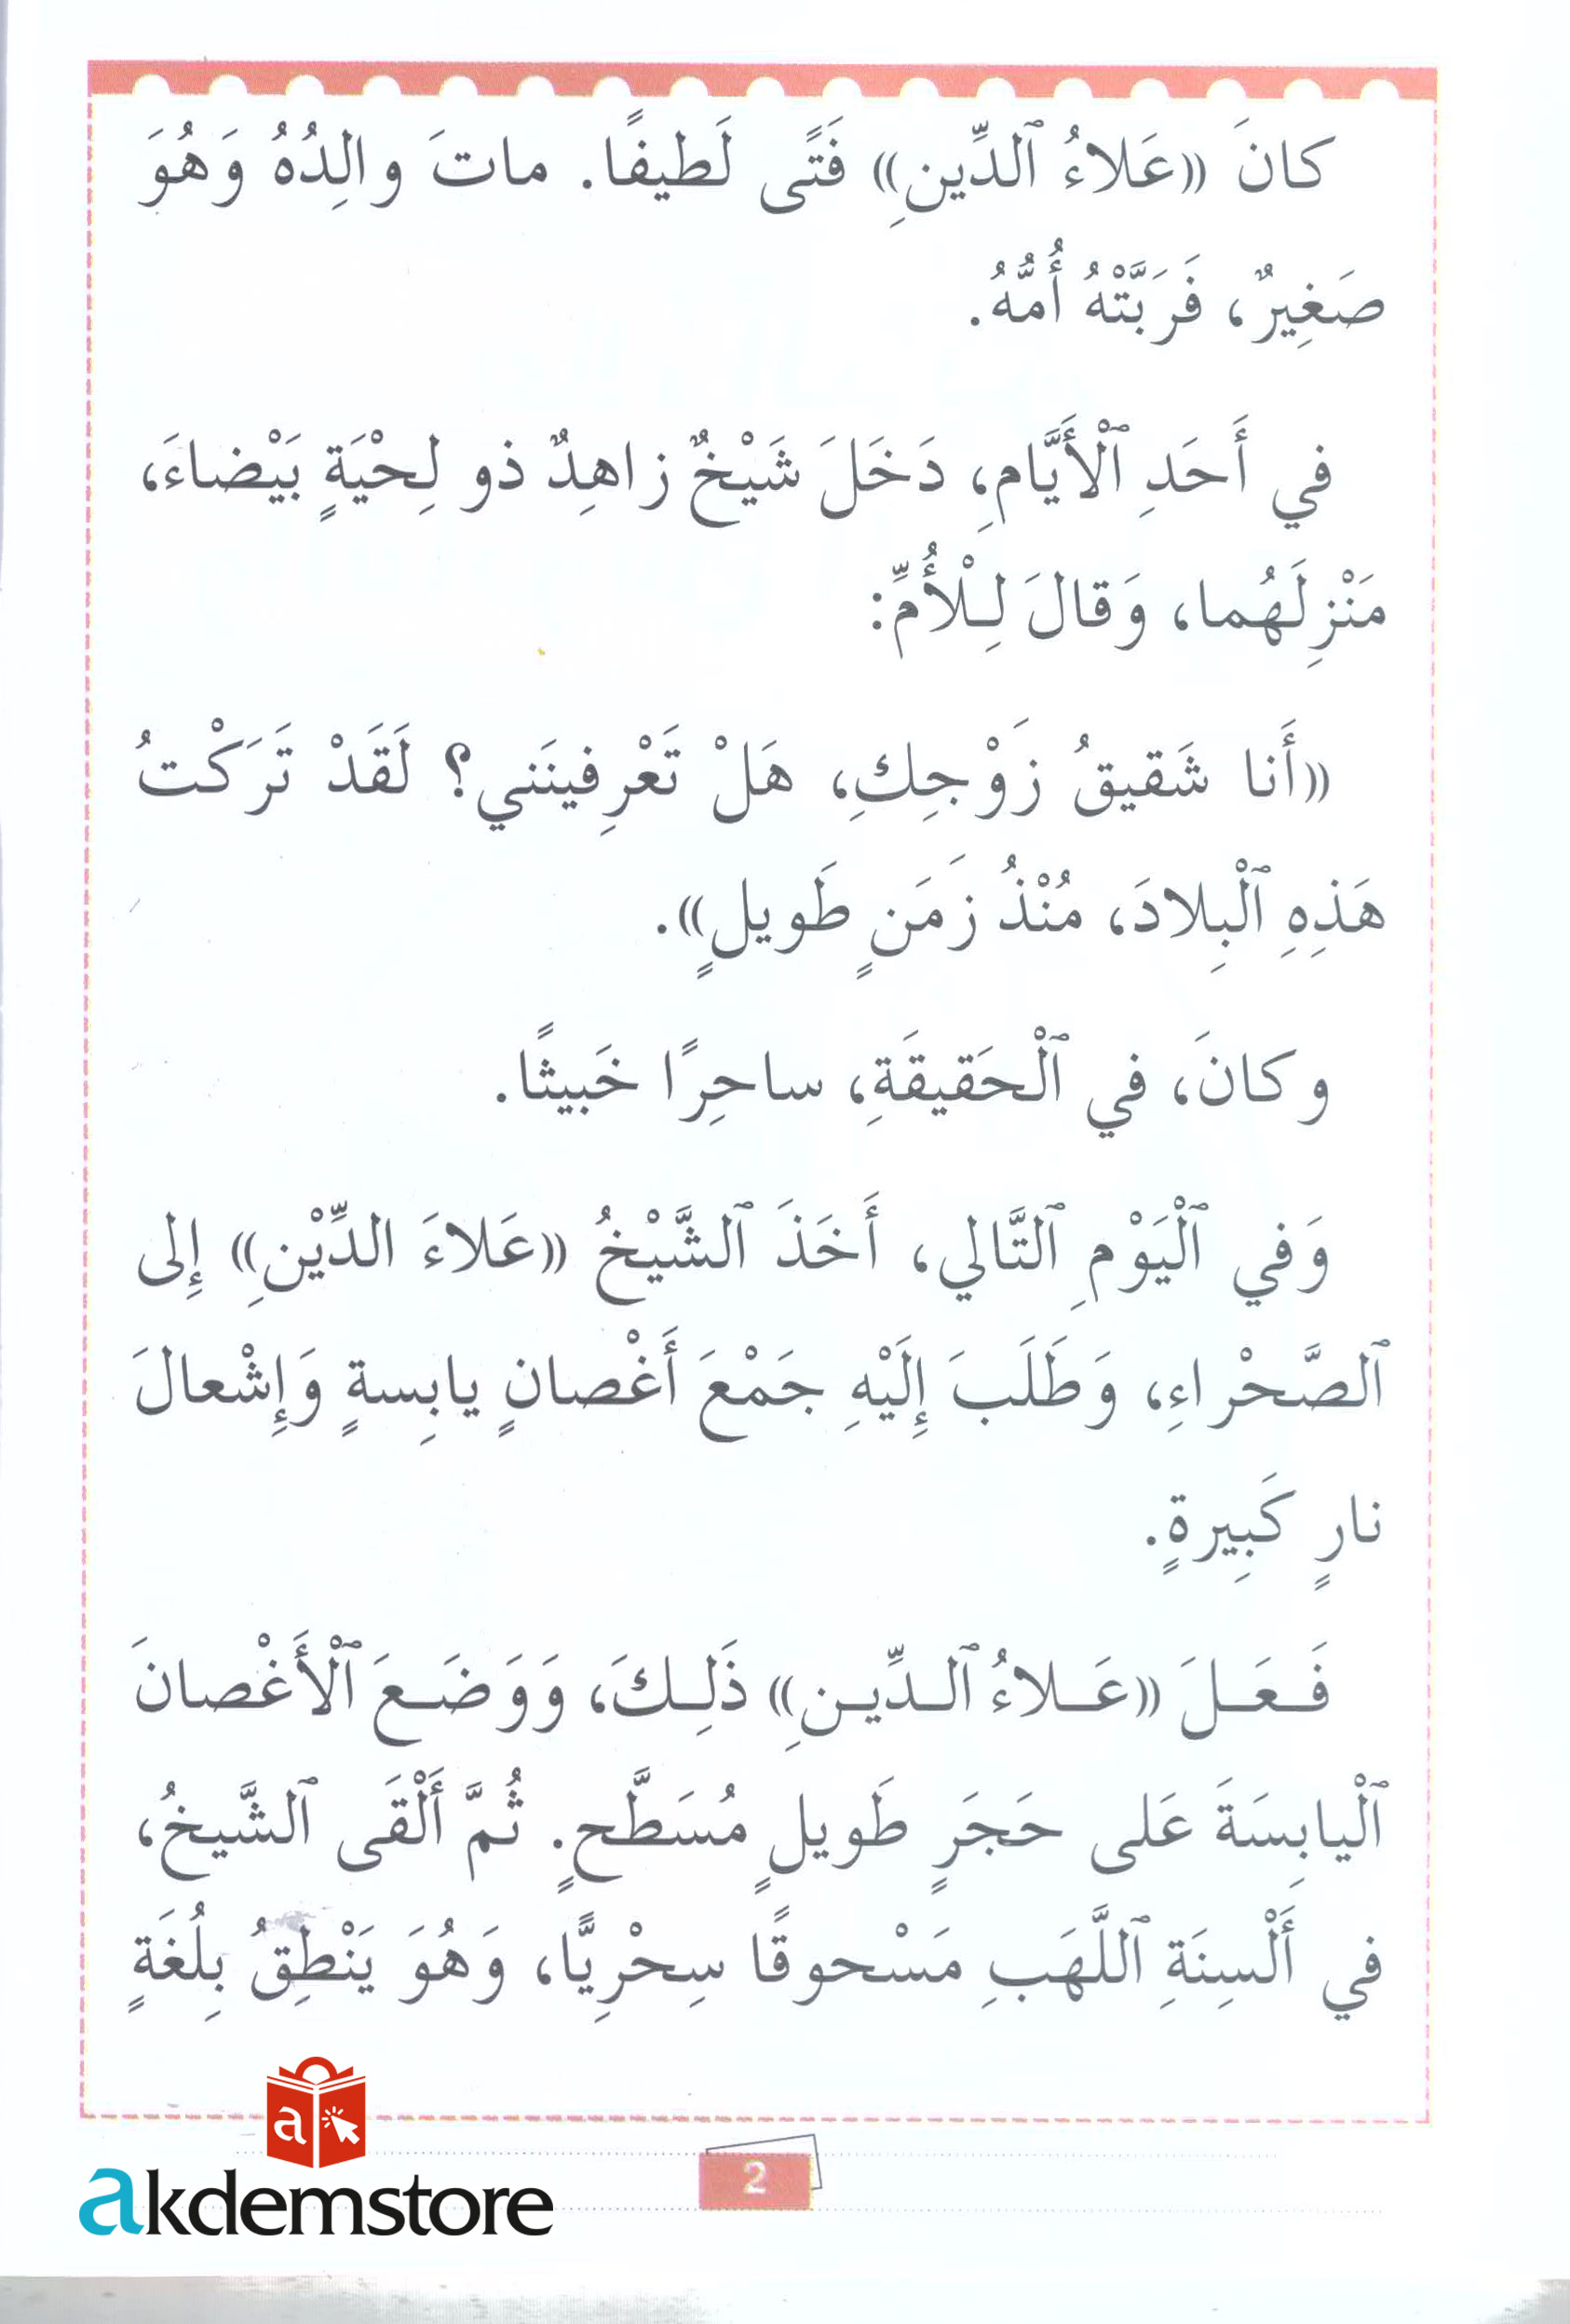 كانَ «عَلاءُ ٱلدِّينِ» فَتًى لَطيفًا. ماتَ والِدُهُ وَهُوَ
صَغِيرٌ، فَرَبَّتْهُ أُمُّهُ.
في أَحَدِ ٱلْأَيَّامِ، دَخَلَ شَيْخٌ زاهِدٌ ذو لِحْيَةٍ بَيْضاءَ،
مَنْزِلَهُما، وَقالَ لِلْأُمِّ:
«أَنا شَقيقُ زَوْجِكِ، هَلْ تَعْرِفينَني؟ لَقَدْ تَرَكْتُ
هَذِهِ ٱلْبِلادَ، مُنْذُ زَمَنٍ طَويلٍ».
وكانَ، في ٱلْحَقيقَةِ، ساحِرًا خَبيثًا.
وَفي ٱلْيَوْمِ ٱلتَّالي، أَخَذَ ٱلشَّيْخُ «عَلاءَ الدِّيْنِ» إِلى
ٱلصَّحْراءِ، وَطَلَبَ إِلَيْهِ جَمْعَ أَغْصانٍ يابِسةٍ وَإِشْعالَ
نارٍ كَبِيرةٍ.
فَـعَـلَ «عَـلاءُ ٱلـدِّيـنِ» ذَلِـكَ، وَوَضَـعَ ٱلْأَغْصانَ
ٱلْيابِسَةَ عَلى حَجَرٍ طَويلٍ مُسَطَّحٍ. ثُمَّ أَلْقَى ٱلشَّيخُ،
في أَلْسِنَةِ ٱللَّهَبِ مَسْحوقًا سِحْرِيًّا، وَهُوَ يَنْطِقُ بِلُغَةٍ
2
a
akdemstore